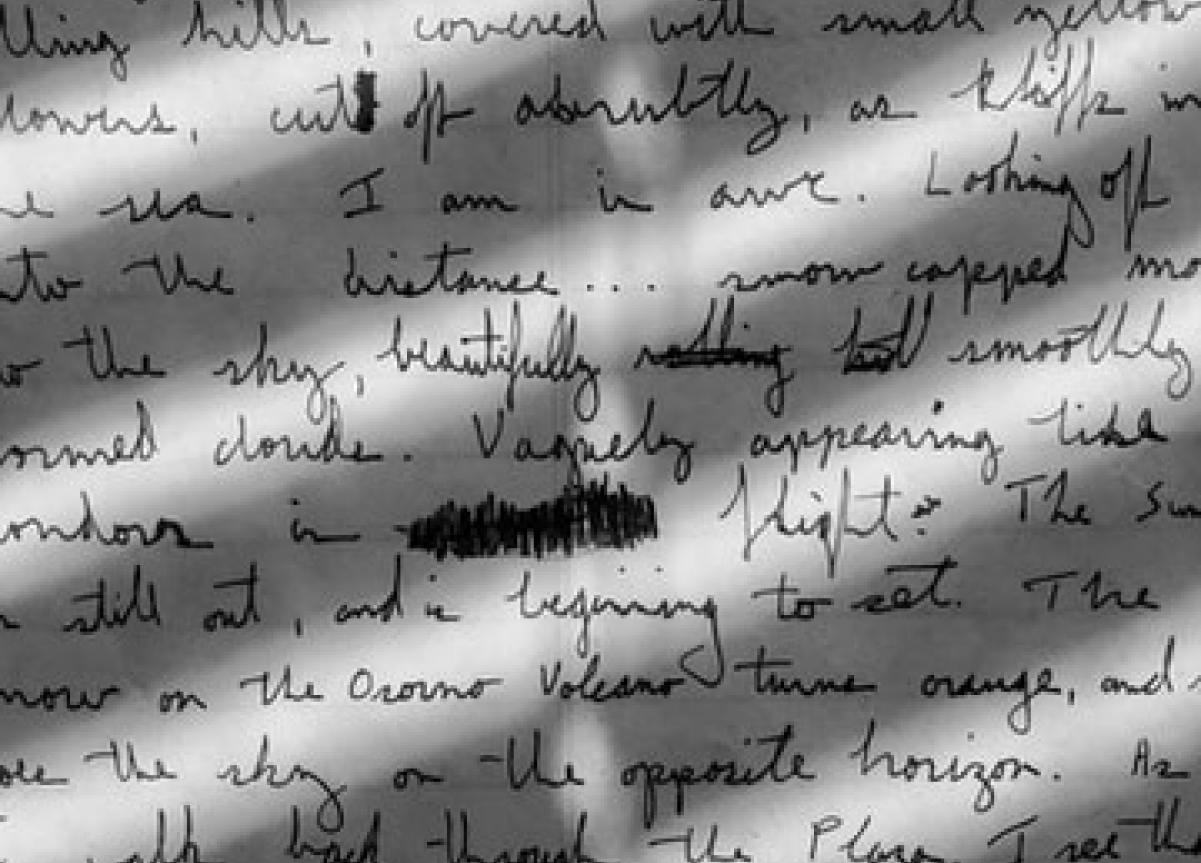 lling hills, covered with small yellow
lowers, cut off abrubtly, as kliffs in
e sea. I am in awe. Looking off
nto the distance... snow capped mo
o the sky, beautifully rolling smoothly
ormed clouds. Vaguely appearing like
ondors in flight. The Sun
still out, and is beginning to set. The
now on the Osorno Volcano turns orange, and
the sky on the opposite horizon. As
walk back through the Plaza I see th